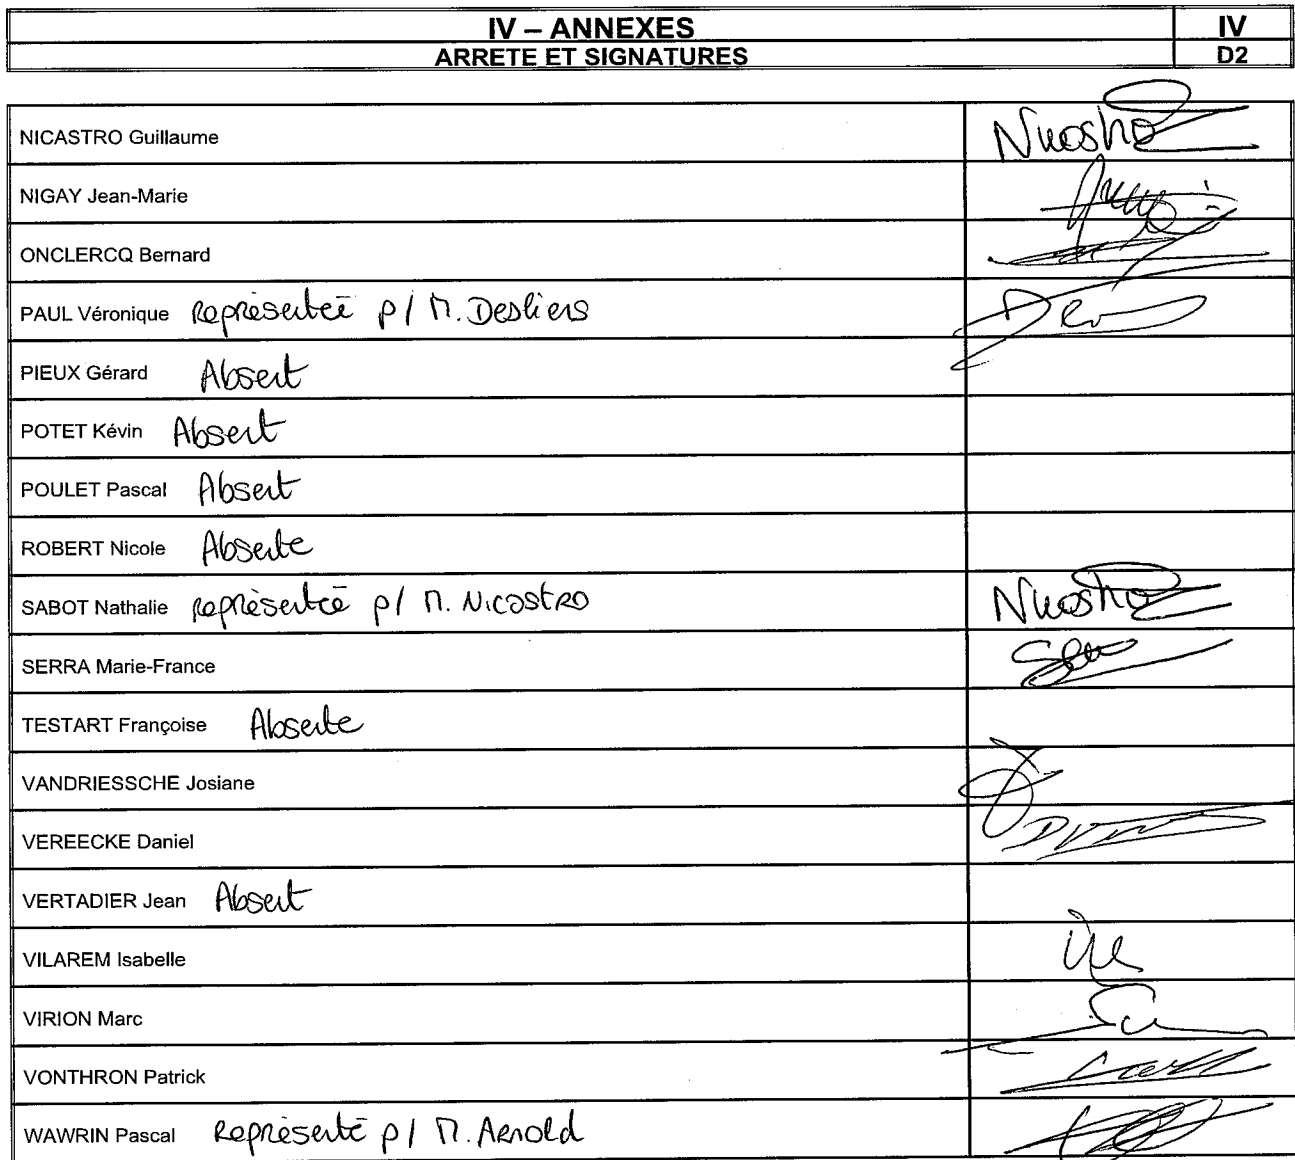 IV – ANNEXES
IV
ARRETE ET SIGNATURES
D2
NICASTRO Guillaume Nicastro
NIGAY Jean-Marie
ONCLERCQ Bernard
PAUL Véronique Représentée p/ M. Desliens
PIEUX Gérard Absent
POTET Kévin Absent
POULET Pascal Absent
ROBERT Nicole Absente
SABOT Nathalie représentée p/ M. Nicastro Nicastro
SERRA Marie-France
TESTART Françoise Absente
VANDRIESSCHE Josiane
VEREECKE Daniel
VERTADIER Jean Absent
VILAREM Isabelle
VIRION Marc
VONTHRON Patrick
WAWRIN Pascal Représenté p/ M. Arnold